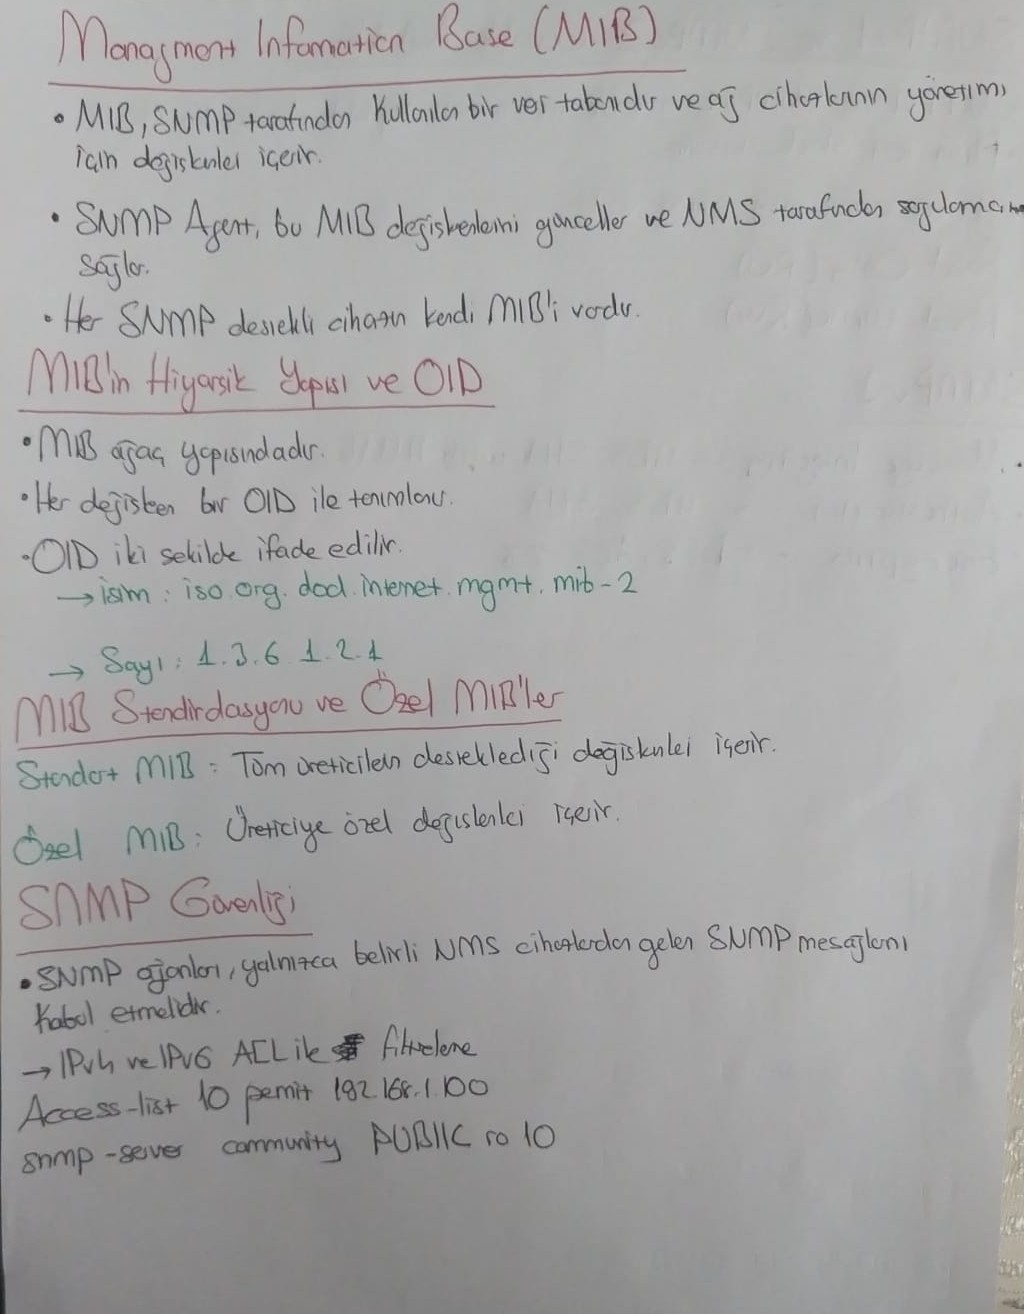 Managment Information Base (MIB)
• MIB, SNMP tarafından Kullanılan bir veri tabanıdır ve ağ cihazlarının yönetimi
için değişkenler içerir.
• SNMP Agent, bu MIB değişkenlerini günceller ve NMS tarafından sorgulama
sağlar.
• Her SNMP destekli cihazın kendi MIB'i vardır.
MIB'in Hiyarşik Yapısı ve OID
• MIB ağaç yapısındadır.
• Her değişken bir OID ile tanımlanır.
• OID iki şekilde ifade edilir.
→ isim : iso.org.dod.internet.mgmt.mib-2
→ Sayı : 1.3.6.1.2.1
MIB Standirdasyonu ve Özel MIB'ler
Standart MIB : Tüm üreticilerin desteklediği değişkenleri içerir.
Özel MIB : Üreticiye özel değişkenleri içerir.
SNMP Güvenliği
• SNMP ajanları, yalnızca belirli NMS cihazlardan gelen SNMP mesajlarını
Kabul etmelidir.
→ IPv4 ve IPv6 ACL ile filtreleme
Access-list 10 permit 192.168.1.100
snmp-server community PUBlIC ro 10